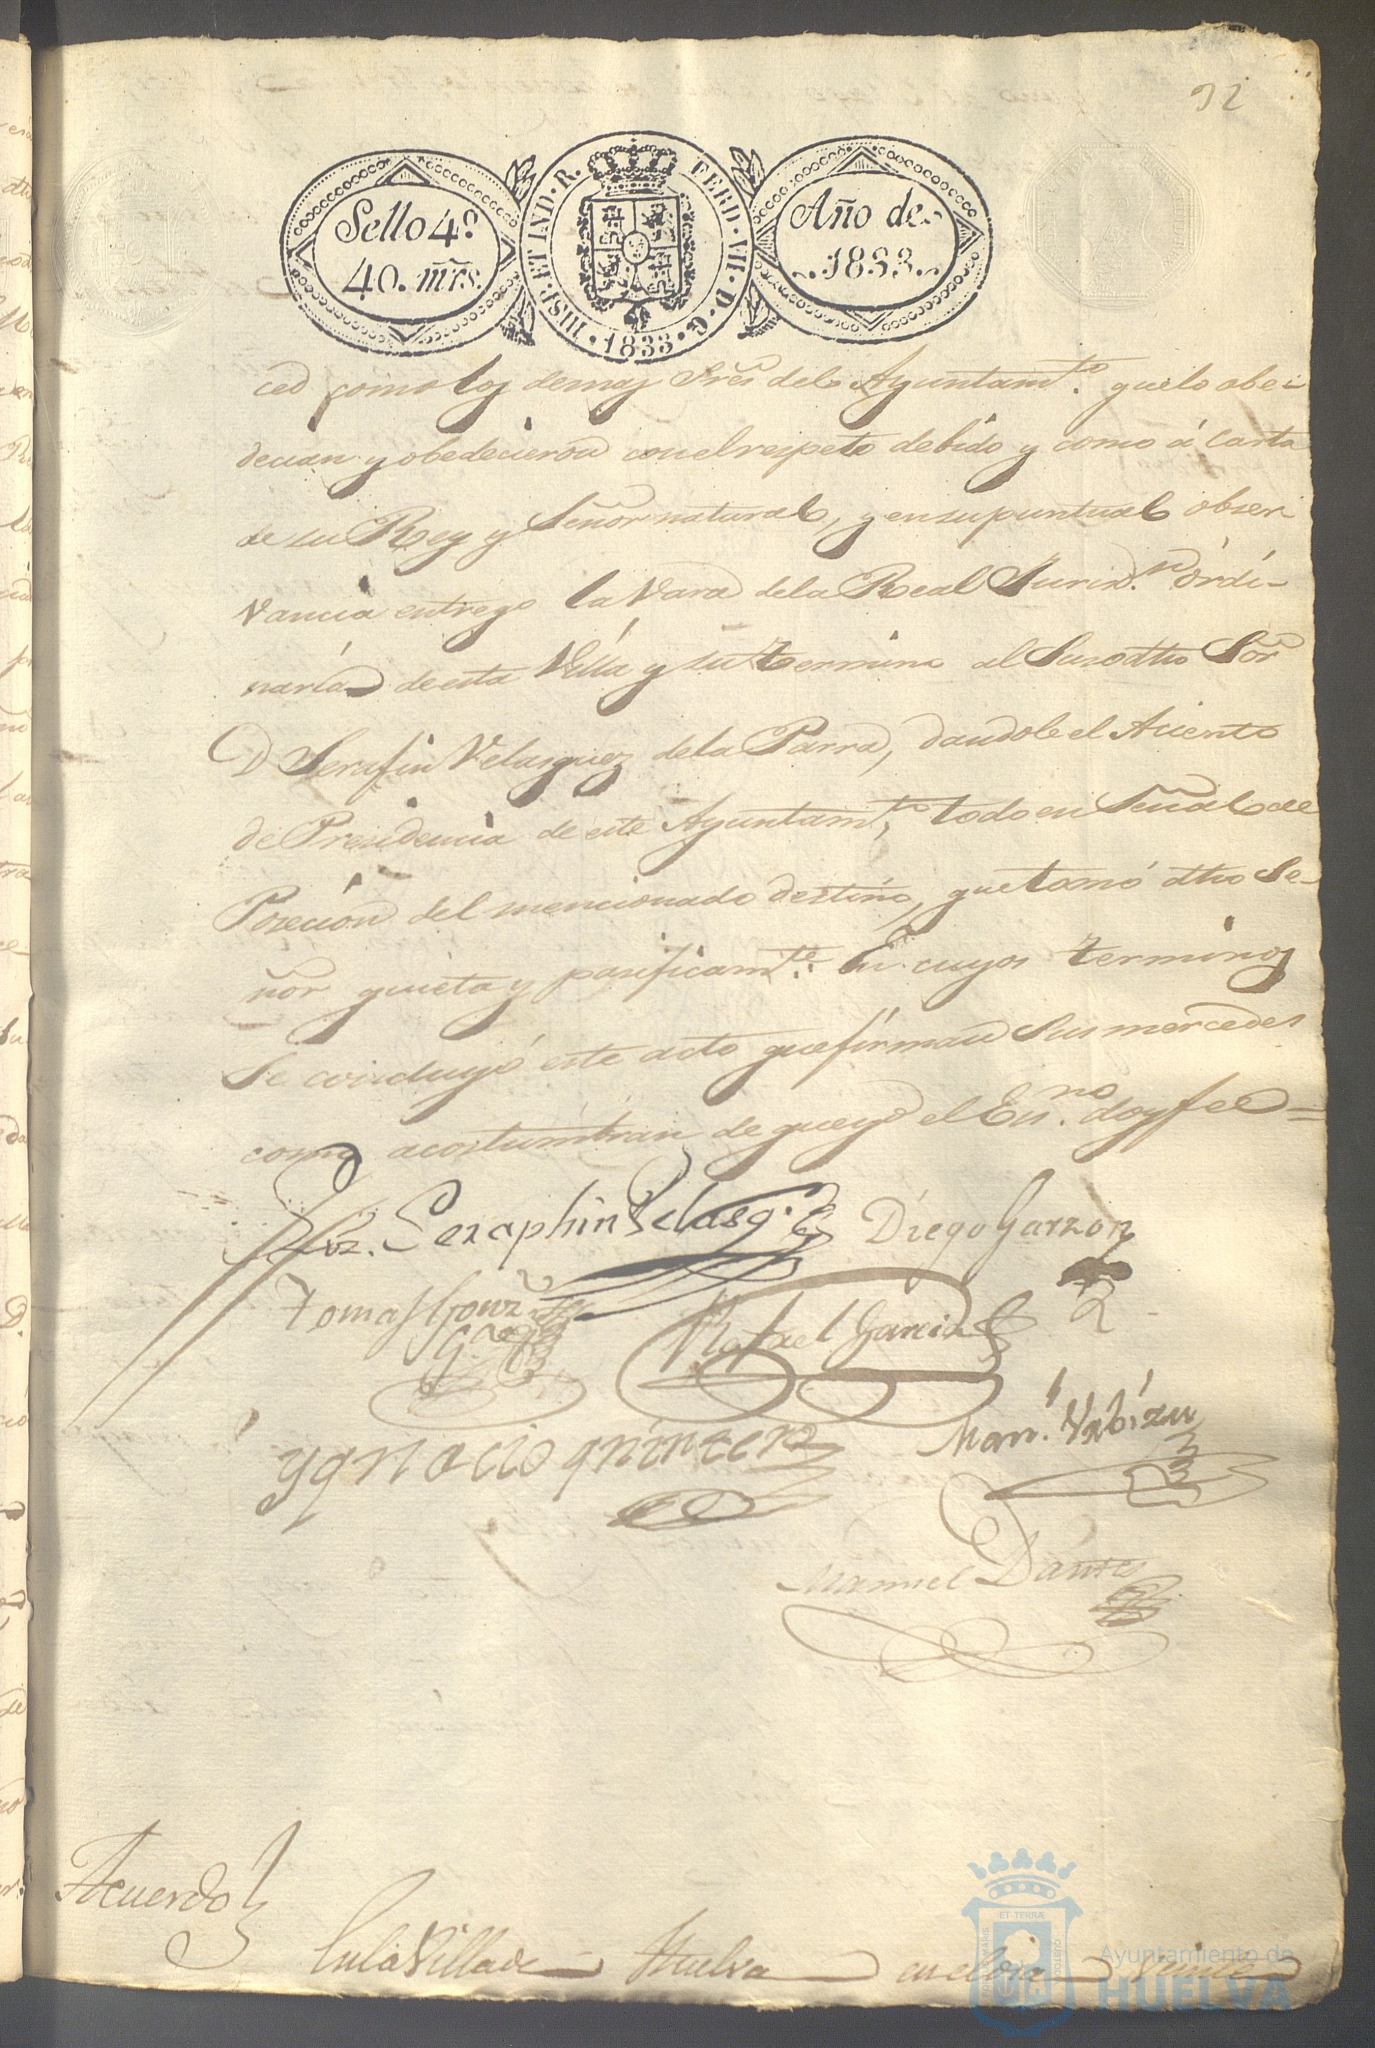 92
Sello 4º.
40. mrs.
HISP. ET IND. R. FERD. VII. D. G.
· 1833 ·
Año de
1833.
ced como los demas Sres del Ayuntamto. que lo obe-
decian y obedecieron con el respeto debido y como á carta
de su Rey y Señor natural, y en su puntual obser-
vancia entrego la Vara de la Real Jurisdn. órdi-
naria de esta Villa y su termino al Susodho Sor
D Serafin Velasquez de la Parra, dandole el Aciento
de Presidencia de este Ayuntamto, todo en Señal de
Posecion del mencionado destino, que tomó dho Se-
ñor quieta y pasificamte. En cuyos terminos
Se concluyó este acto que firman Sus mercedes
como acostumbran de que yo el Esno. doy fee =
Seraphin Velasqz Diego Garzon
Tomas Gonz
Rafael Garcia
Ygnacio quintero
Manl. Vrbizu
Manuel Dantes
Acuerdo
En la Villa de Huelva en el dia veinte
ET TERRÆ
Ayuntamiento de
HUELVA